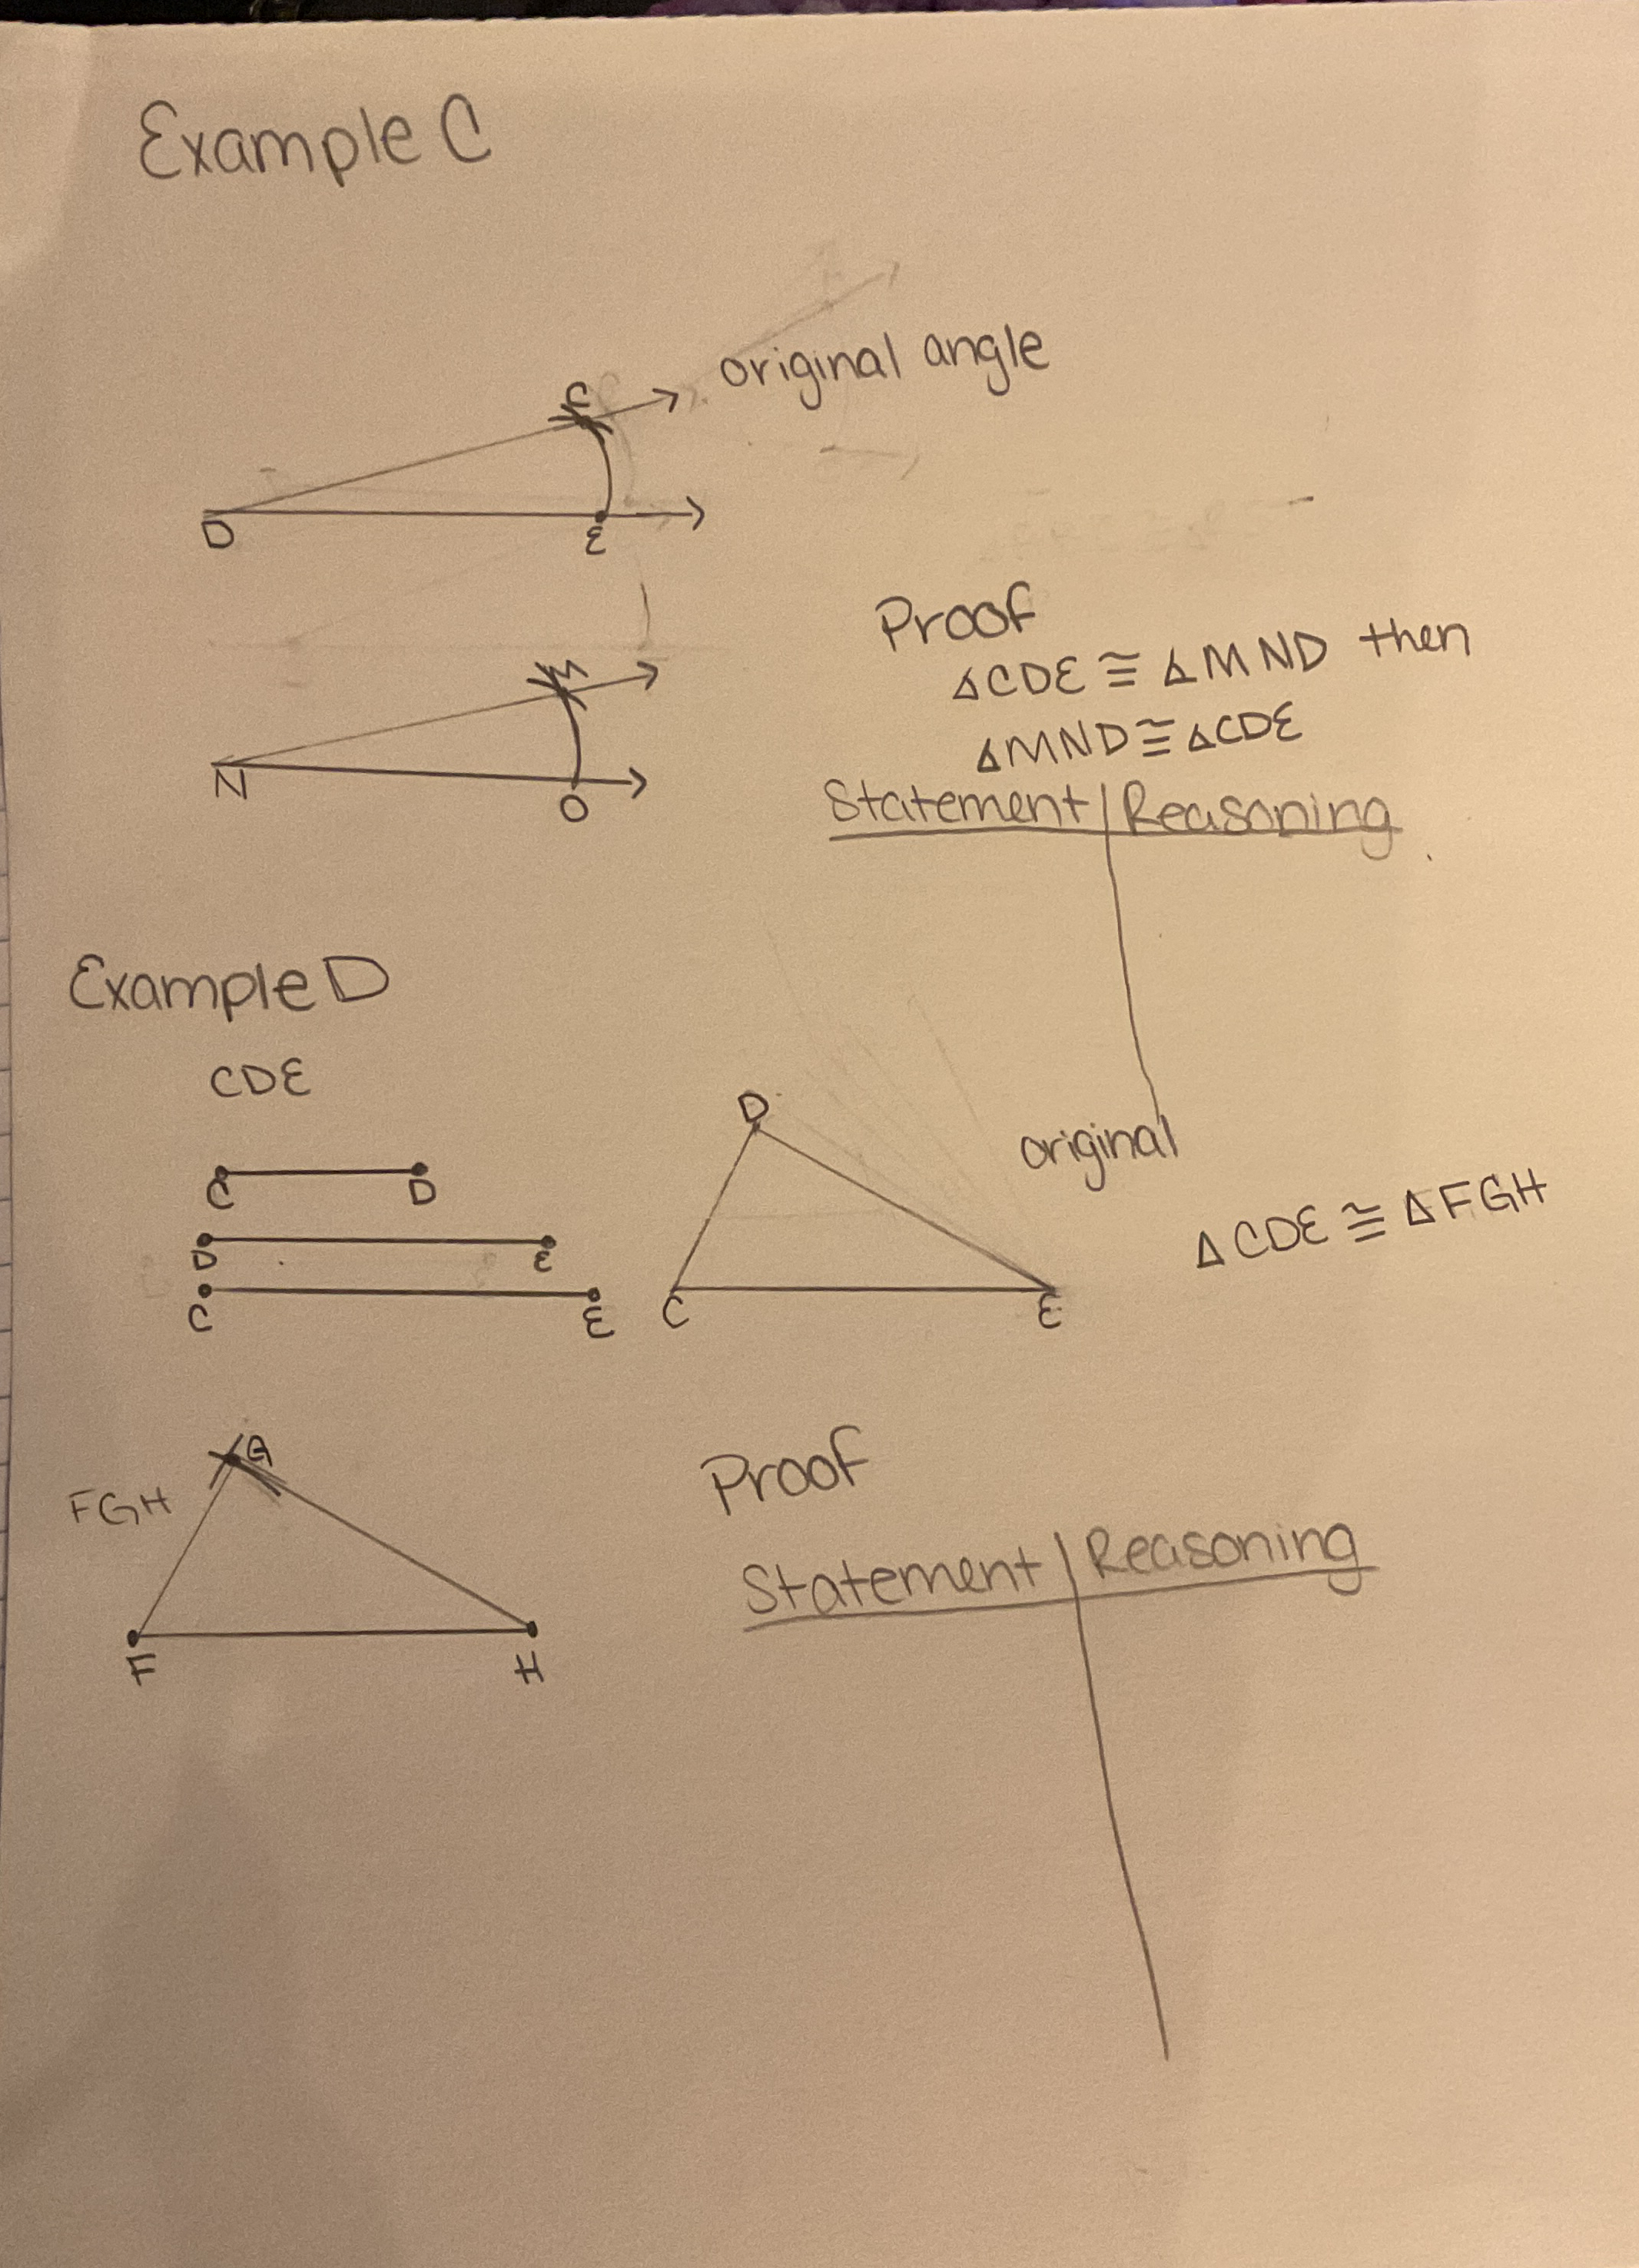 Example C
original angle
C
D
E
M
N
O
Proof
△CDE ≅ △MND then
△MND ≅ △CDE
Statement | Reasoning
Example D
CDE
C D
D E
C E
D
C E
original
△CDE ≅ △FGH
FGH
G
F H
Proof
Statement | Reasoning